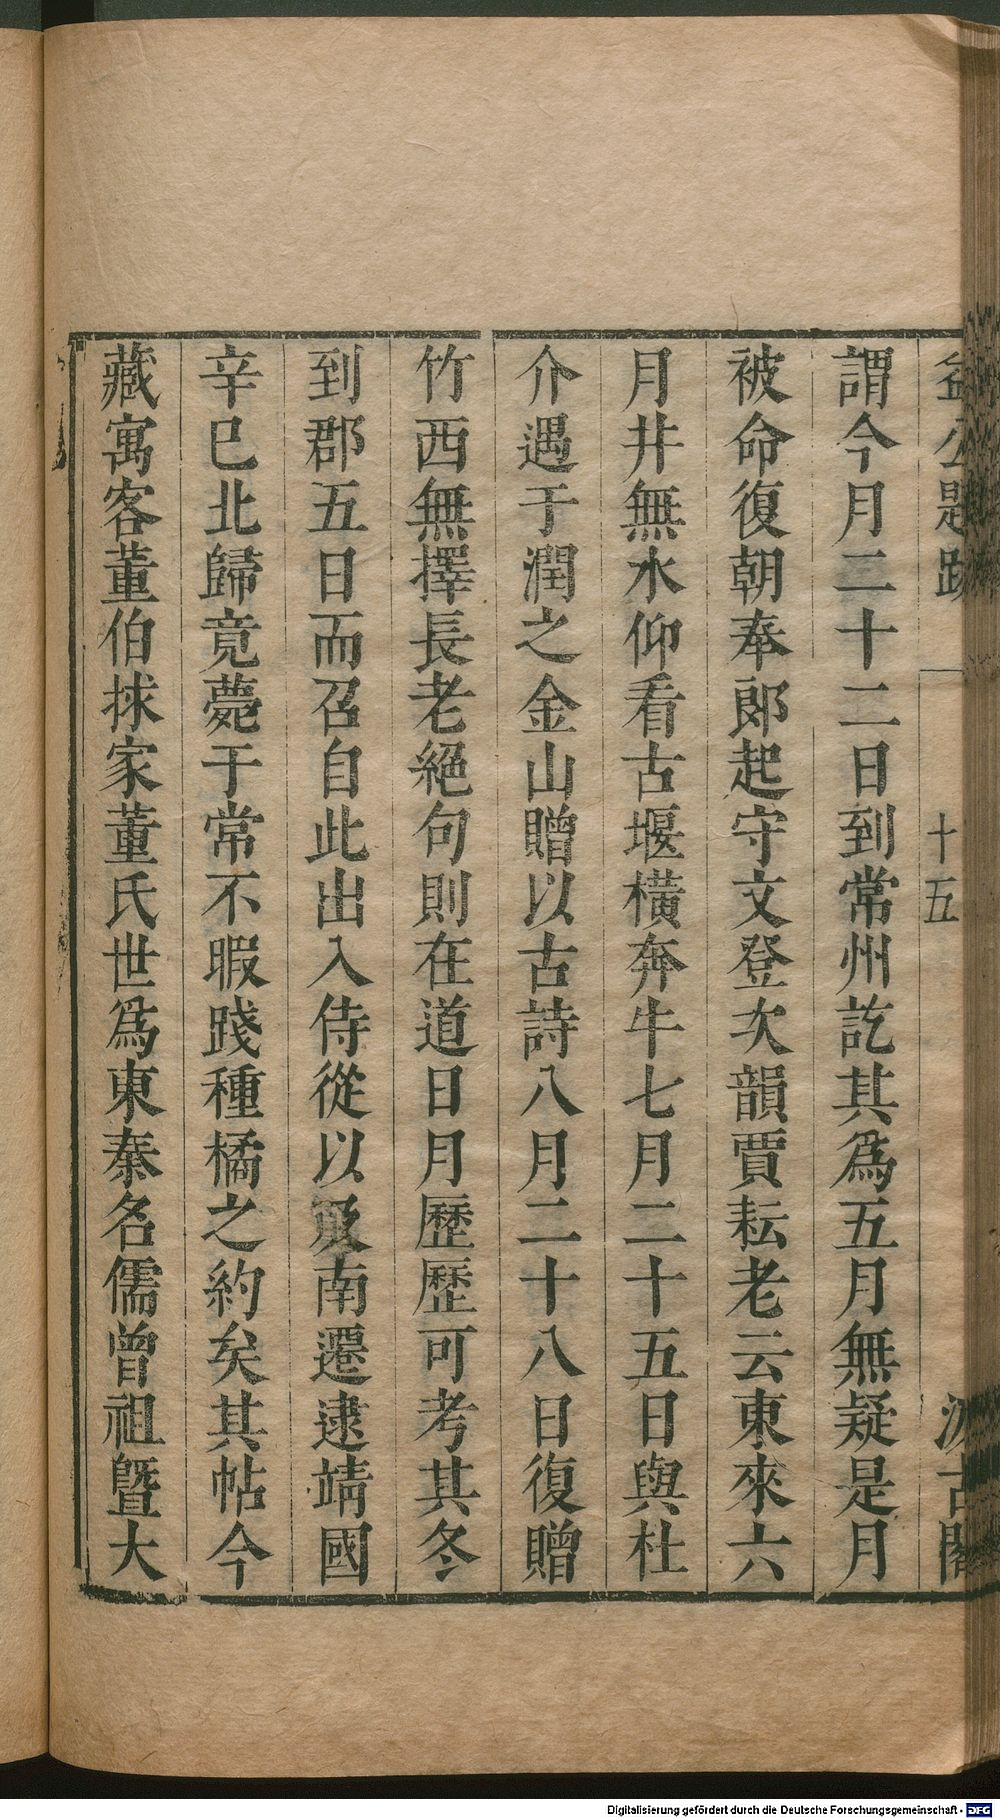 益公題跋 十五 汲古閣
謂今月二十二日到常州訖其爲五月無疑是月
被命復朝奉郞起守文登次韻賈耘老云東來六
月井無水仰看古堰橫奔牛七月二十五日與杜
介遇于潤之金山贈以古詩八月二十八日復贈
竹西無擇長老絕句則在道日月歷歷可考其冬
到郡五日而召自此出入侍從以及南遷逮靖國
辛巳北歸竟薨于常不暇踐種橘之約矣其帖今
藏寓客董伯捄家董氏世爲東秦名儒曾祖曁大
Digitalisierung gefördert durch die Deutsche Forschungsgemeinschaft - DFG